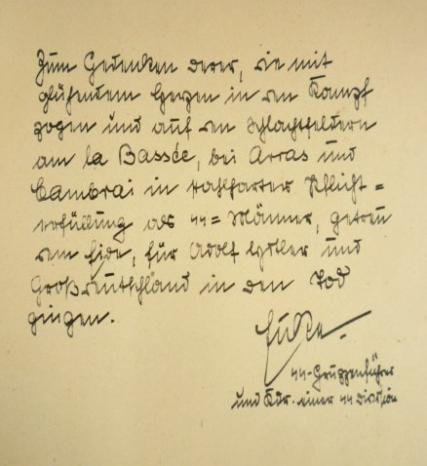 Zum Gedenken derer, die mit
glühendem Herzen in den Kampf
zogen und auf den Schlachtfeldern
am la Bassée, bei Arras und
Cambrai in stahlharter Pflicht=
erfüllung als SS=Männer, getreu
dem Eide, für Adolf Hitler und
Großdeutschland in den Tod
gingen.
Eicke.
SS-Gruppenführer
und Kdr. einer SS Division